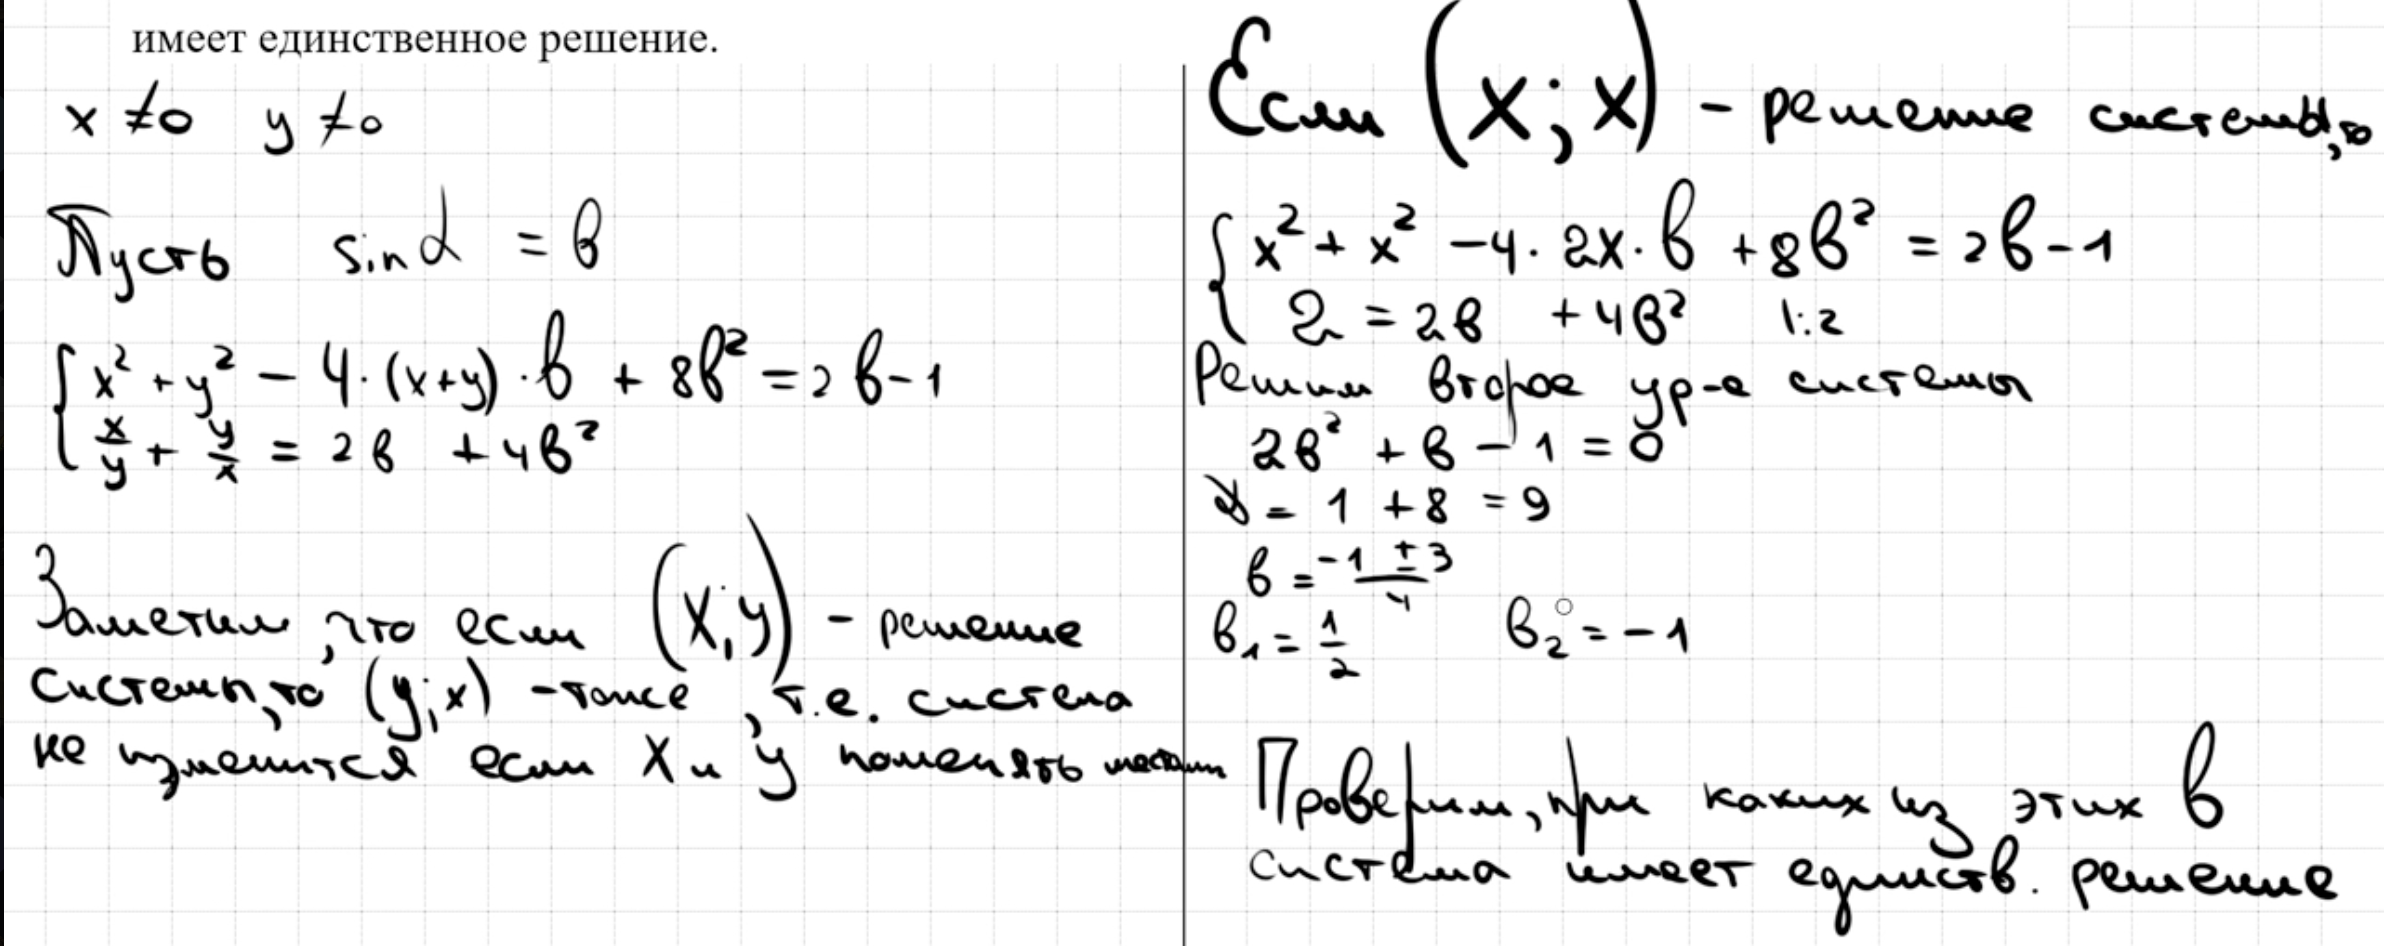 имеет единственное решение.
x ≠ 0   y ≠ 0
Пусть   sin α = b
{ x² + y² - 4·(x+y)·b + 8b² = 2b - 1
x/y + y/x = 2b + 4b²
Заметим, что если (x;y) - решение
системы, то (y;x) - тоже, т.е. система
не изменится если x и y поменять местами
Если (x;x) - решение системы, то
{ x² + x² - 4·2x·b + 8b² = 2b - 1
2 = 2b + 4b²   |:2
Решим второе ур-е системы
2b² + b - 1 = 0
D = 1 + 8 = 9
b = (-1 ± 3)/4
b₁ = 1/2   b₂ = -1
Проверим, при каких из этих b
система имеет единств. решение